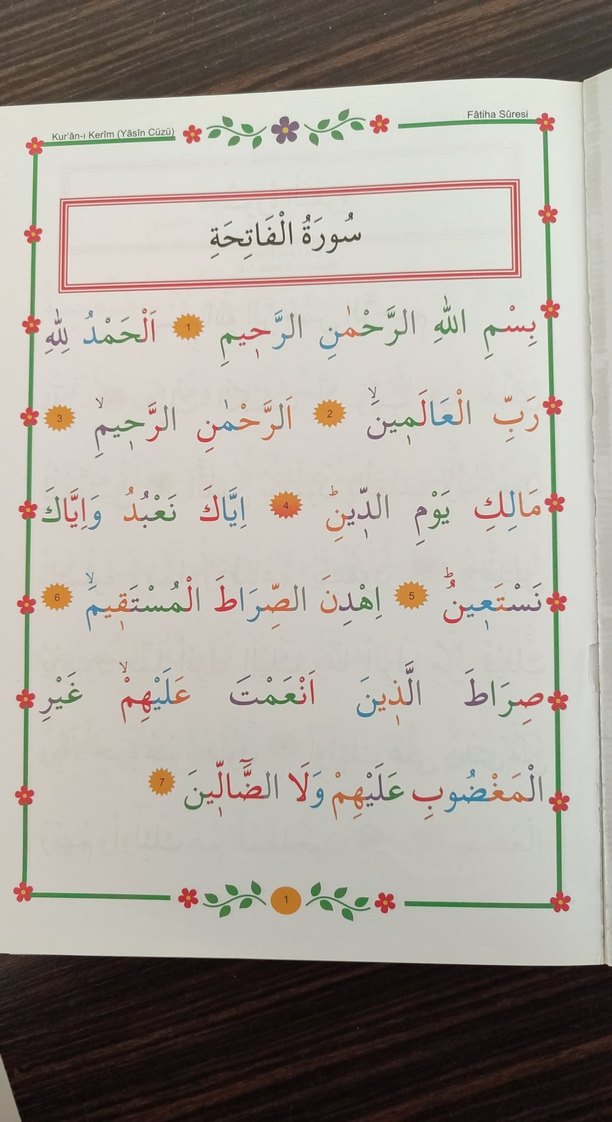 Kur'ân-ı Kerîm (Yâsîn Cüzü) Fâtiha Sûresi
سُورَةُ الْفَاتِحَةِ
بِسْمِ اللّٰهِ الرَّحْمٰنِ الرَّح۪يمِ 1 اَلْحَمْدُ لِلّٰهِ
رَبِّ الْعَالَم۪ينَۙ 2 اَلرَّحْمٰنِ الرَّح۪يمِۙ 3
مَالِكِ يَوْمِ الدّ۪ينِۜ 4 اِيَّاكَ نَعْبُدُ وَاِيَّاكَ
نَسْتَع۪ينُۜ 5 اِهْدِنَا الصِّرَاطَ الْمُسْتَق۪يمَۙ 6
صِرَاطَ الَّذ۪ينَ اَنْعَمْتَ عَلَيْهِمْۙ غَيْرِ
الْمَغْضُوبِ عَلَيْهِمْ وَلَا الضَّٓالّ۪ينَ 7
1